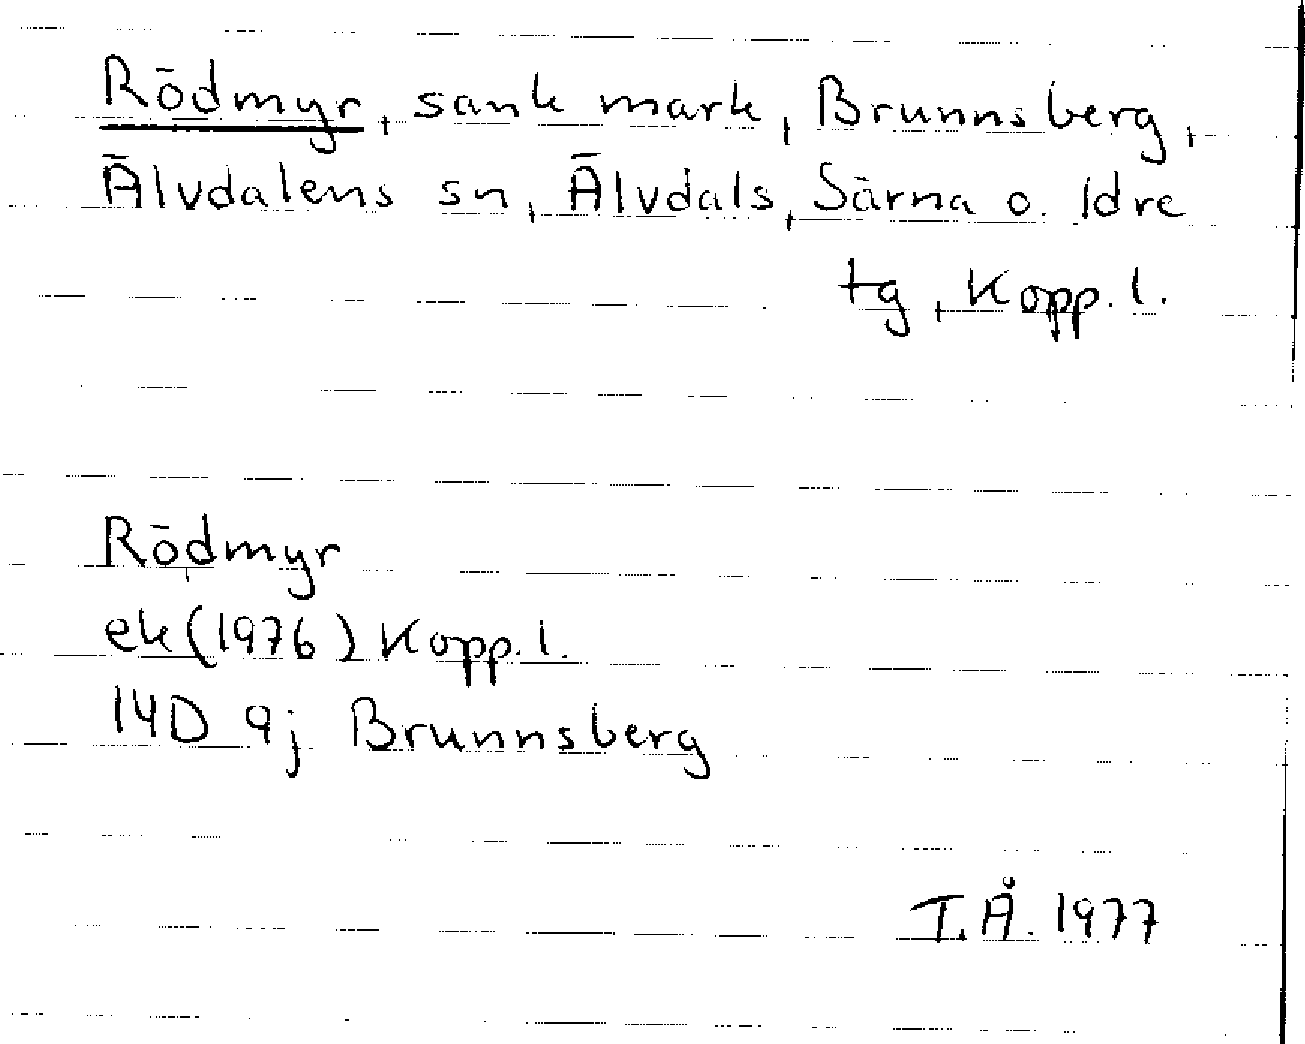 Rödmyr, sank mark, Brunnsberg,
Älvdalens sn, Älvdals, Särna o. Idre
tg, Kopp. l.
Rödmyr
ek (1976) Kopp. l.
14D 9j Brunnsberg
T.Å. 1977